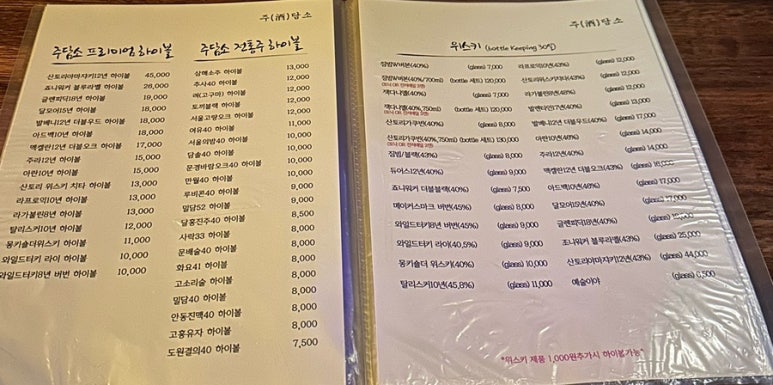 주(酒)담소
주담소 프리미엄 하이볼
산토리야마자키12년 하이볼 45,000
죠니워커 블루라벨 하이볼 26,000
글렌피딕18년 하이볼 19,000
달모어15년 하이볼 18,000
발베니12년 더블우드 하이볼 18,000
아드벡10년 하이볼 18,000
맥캘란12년 더블오크 하이볼 17,000
쥬라12년 하이볼 15,000
아란10년 하이볼 15,000
산토리 위스키 치타 하이볼 13,000
라프로익10년 하이볼 13,000
라가불린8년 하이볼 13,000
탈리스커10년 하이볼 12,000
몽키숄더위스키 하이볼 11,000
와일드터키 라이 하이볼 10,000
와일드터키8년 버번 하이볼 10,000
주담소 전통주 하이볼
삼해소주 하이볼 13,000
추사40 하이볼 12,000
려(고구마) 하이볼 12,000
토끼블랙 하이볼 12,000
서울고량오크 하이볼 12,000
여유40 하이볼 11,000
서울의밤40 하이볼 11,000
담솔40 하이볼 10,000
문경바람오크40 하이볼 10,000
만월40 하이볼 10,000
루비콘40 하이볼 9,000
밀담52 하이볼 9,000
달홍진주40 하이볼 8,500
사락33 하이볼 8,000
문배술40 하이볼 8,000
화요41 하이볼 8,000
고소리술 하이볼 8,000
밀담40 하이볼 8,000
안동진맥40 하이볼 8,000
고흥유자 하이볼 8,000
도원결의40 하이볼 7,500
주(酒)담소
위스키 (bottle Keeping 30일)
짐빔W버번(40%) (glass) 7,000
짐빔W버번(40%/700ml) (bottle 세트) 120,000
잭다니엘(40%) (glass) 7,000
잭다니엘(40%,750ml) (bottle 세트) 120,000
산토리가쿠빈(40%) (glass) 8,000
산토리가쿠빈(40%,750ml) (bottle 세트) 130,000
짐빔/블랙(43%) (glass) 8,000
듀어스12년(40%) (glass) 9,000
죠니워커 더블블랙(40%) (glass) 7,500
메이커스마크 버번(45%) (glass) 8,000
와일드터키8년 버번(45%) (glass) 9,000
와일드터키 라이(40.5%) (glass) 9,000
몽키숄더 위스키(40%) (glass) 10,000
탈리스커10년(45.8%) (glass) 11,000
라프로익10년(43%) (glass) 12,000
산토리위스키치타(43%) (glass) 12,000
라가불린8년(48%) (glass) 12,000
발렌타인17년(40%) (glass) 13,000
발베니12년 더블우드(40%) (glass) 17,000
아란10년(40%) (glass) 14,000
쥬라12년(40%) (glass) 14,000
맥캘란12년 더블오크(43%) (glass) 16,000
아드벡10년(46%) (glass) 17,000
달모어15년(40%) (glass)
글렌피딕18년(40%) (glass)
죠니워커 블루라벨(43%) (glass) 25,000
산토리야마자키12년(43%) (glass) 44,000
예술이야 (glass)
*위스키 제품 1,000원추가시 하이볼가능*